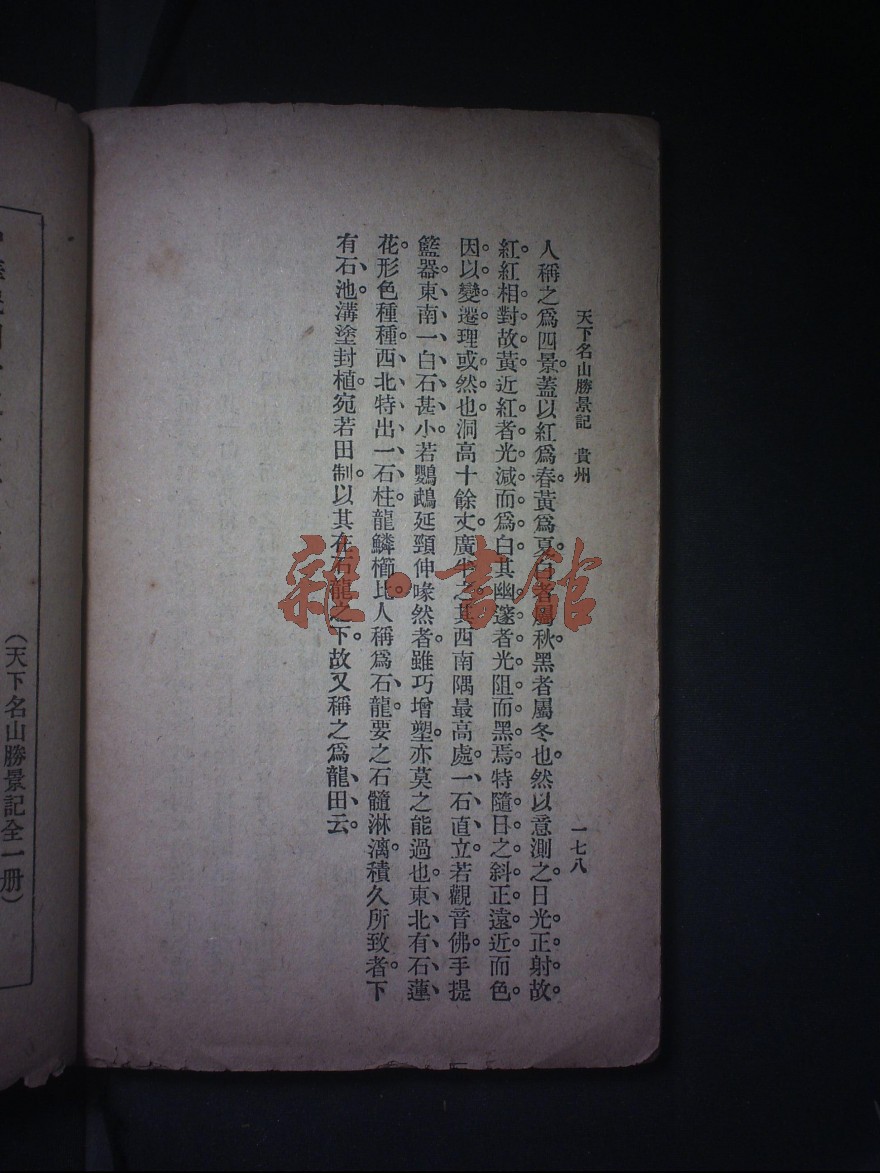 天下名山勝景記　貴州
一七八
人稱之爲四景。蓋以紅爲春。黃爲夏。白者屬秋。黑者屬冬也。然以意測之。日光正射。故
紅。紅相對。故黃。近紅者光減而爲白。其幽邃者光阻而黑焉。特隨日之斜正遠近而色
因以變遷。理或然也。洞高十餘丈。廣半之。其西南隅最高處。一石直立。若觀音佛手提
籃器、東南一白石甚小。若鸚鵡延頸伸喙然者。雖巧增塑。亦莫之能過也。東北有石蓮
花。形色種種。西北特出一石柱。龍鱗櫛比。人稱爲石龍。要之石髓淋漓。積久所致者。下
有石池。溝塗封植。宛若田制。以其在石龍之下。故又稱之爲龍田云。
（天下名山勝景記全一册）
雜·書館